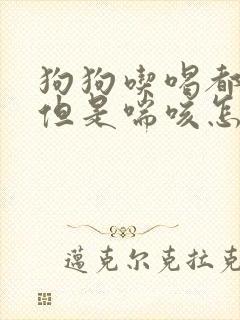 狗狗喫喝都
但是喘咳怎
蓮克尔克拉克